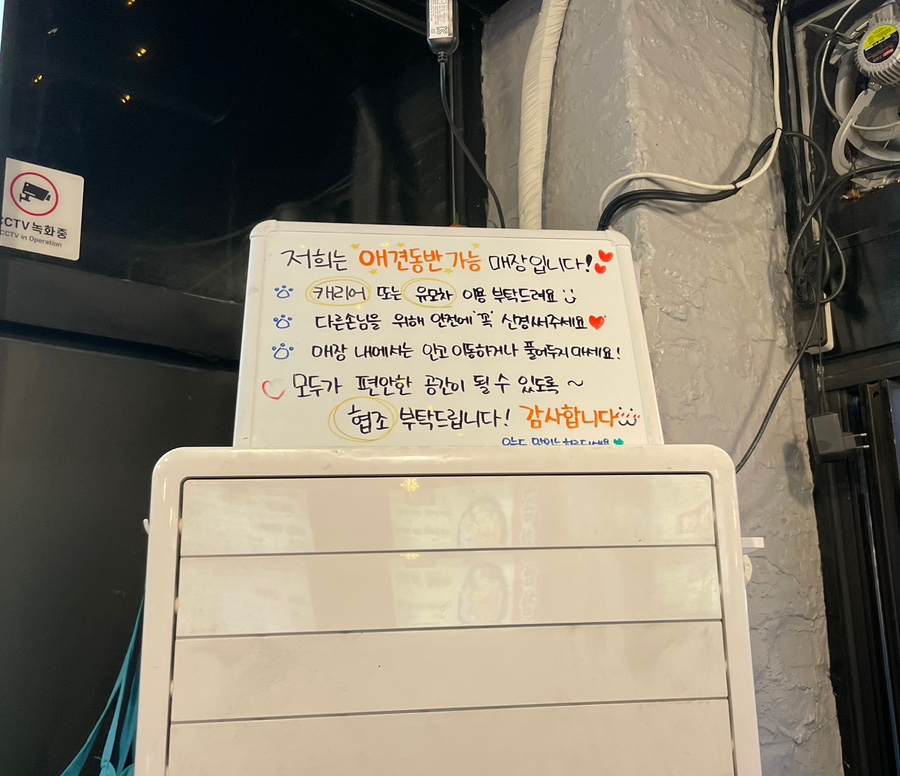 CCTV 녹화중
CCTV in Operation
저희는 애견동반 가능 매장입니다!
캐리어 또는 유모차 이용 부탁드려요
다른손님을 위해 안전에 '꼭' 신경써주세요
매장 내에서는 안고 이동하거나 풀어두지 마세요!
모두가 편안한 공간이 될 수 있도록 ~
협조 부탁드립니다! 감사합니다